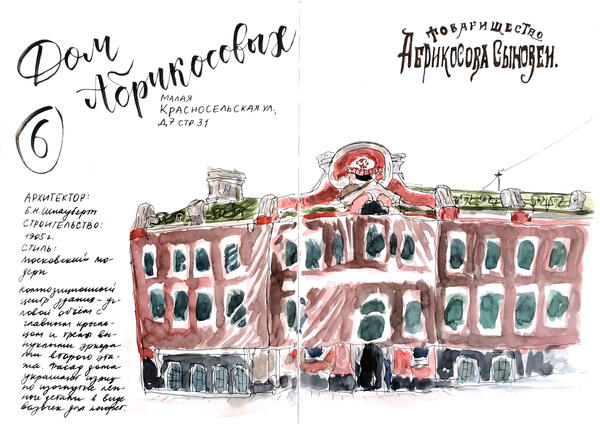 Дом
Абрикосовых
6
МАЛАЯ
КРАСНОСЕЛЬСКАЯ УЛ.,
Д.7 СТР.31
ТОВАРИЩЕСТВО
АБРИКОСОВА СЫНОВЕЙ.
АРХИТЕКТОР:
Б.Н. Шнауберт
СТРОИТЕЛЬСТВО:
1905 г.
СТИЛЬ:
московский мо-
дерн
композиционный
центр здания - уг-
ловой объём с
главным крыль-
цом и тремя вы-
пуклыми эркера-
ми второго эта-
жа. Фасад дома
украшают изящ-
но изогнутые леп-
ные детали в виде
вазочек для конфет.